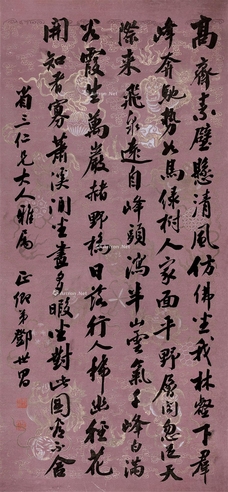 高齋素壁懸清風仿佛坐我林壑下群
峰奔馳勢如馬綠樹人家面平野層閣忽從天
際來飛泉遠自峰頭瀉半山雲氣千峰白滿
谷霞生萬巖赭野橋日落行人稀幽徑花
開知者寡蕭溪閒坐畫多暇坐對此圖看不舍
省三仁兄大人雅屬 正卿弟鄧世昌